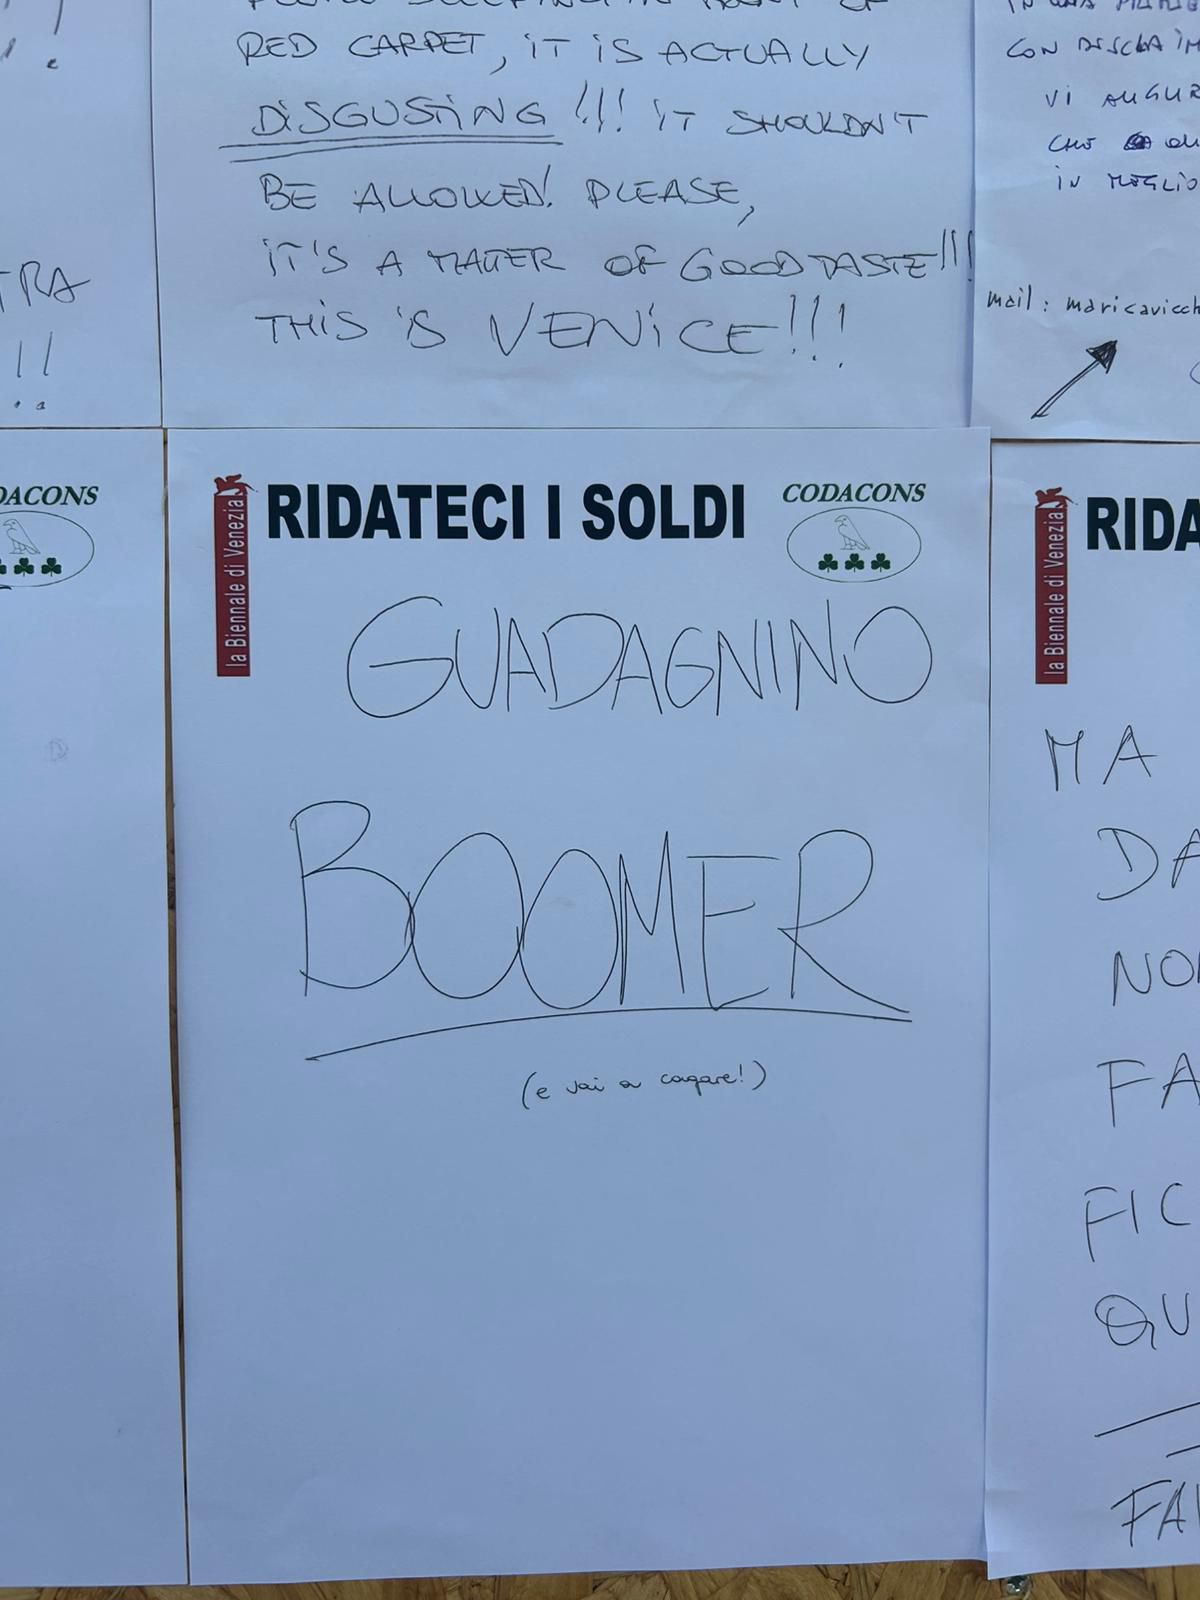 RED CARPET, IT IS ACTUALLY
DISGUSTING !!! IT SHOULDN'T
BE ALLOWED! PLEASE,
IT'S A MATTER OF GOOD TASTE!!!
THIS IS VENICE!!!
CON
VI AUGUR
IN MEGLIO
mail: maricavicch
TRA
!!
DACONS
la Biennale di Venezia
RIDATECI I SOLDI
CODACONS
GUADAGNINO
BOOMER
(e vai a cagare!)
la Biennale di Venezia
RIDA
MA
DA
NON
FA
FIC
QU
FA